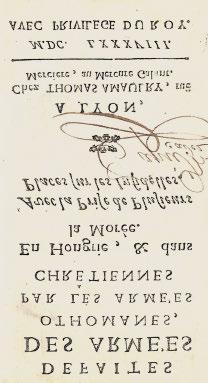 DEFAITES
DES ARME'ES
OTHOMANES,
PAR LES ARME'ES
CHRETIENNES
En Hongrie, & dans
la Morée.
Avec la Prise de Plusieurs
Places sur les Infidelles.
A LYON,
Chez THOMAS AMAULRY, ruë
Merciere, au Mercure Galant.
M.DC. LXXXVIII.
AVEC PRIVILEGE DU ROY.